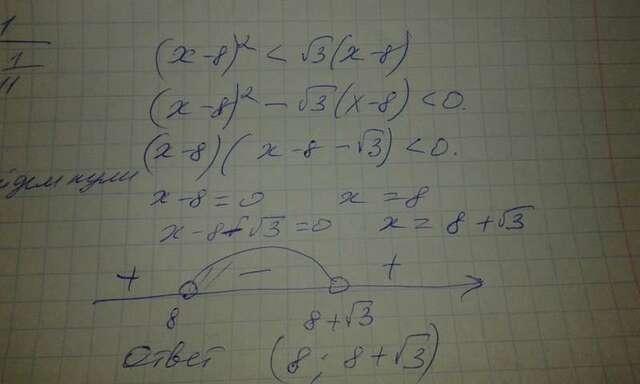 1
1
11
(x-8)² < √3(x-8)
(x-8)² - √3(x-8) < 0.
(x-8)(x-8-√3) < 0.
йдем нули
x-8=0 x=8
x-8-√3=0 x=8+√3
+ - +
8 8+√3
Ответ (8; 8+√3)